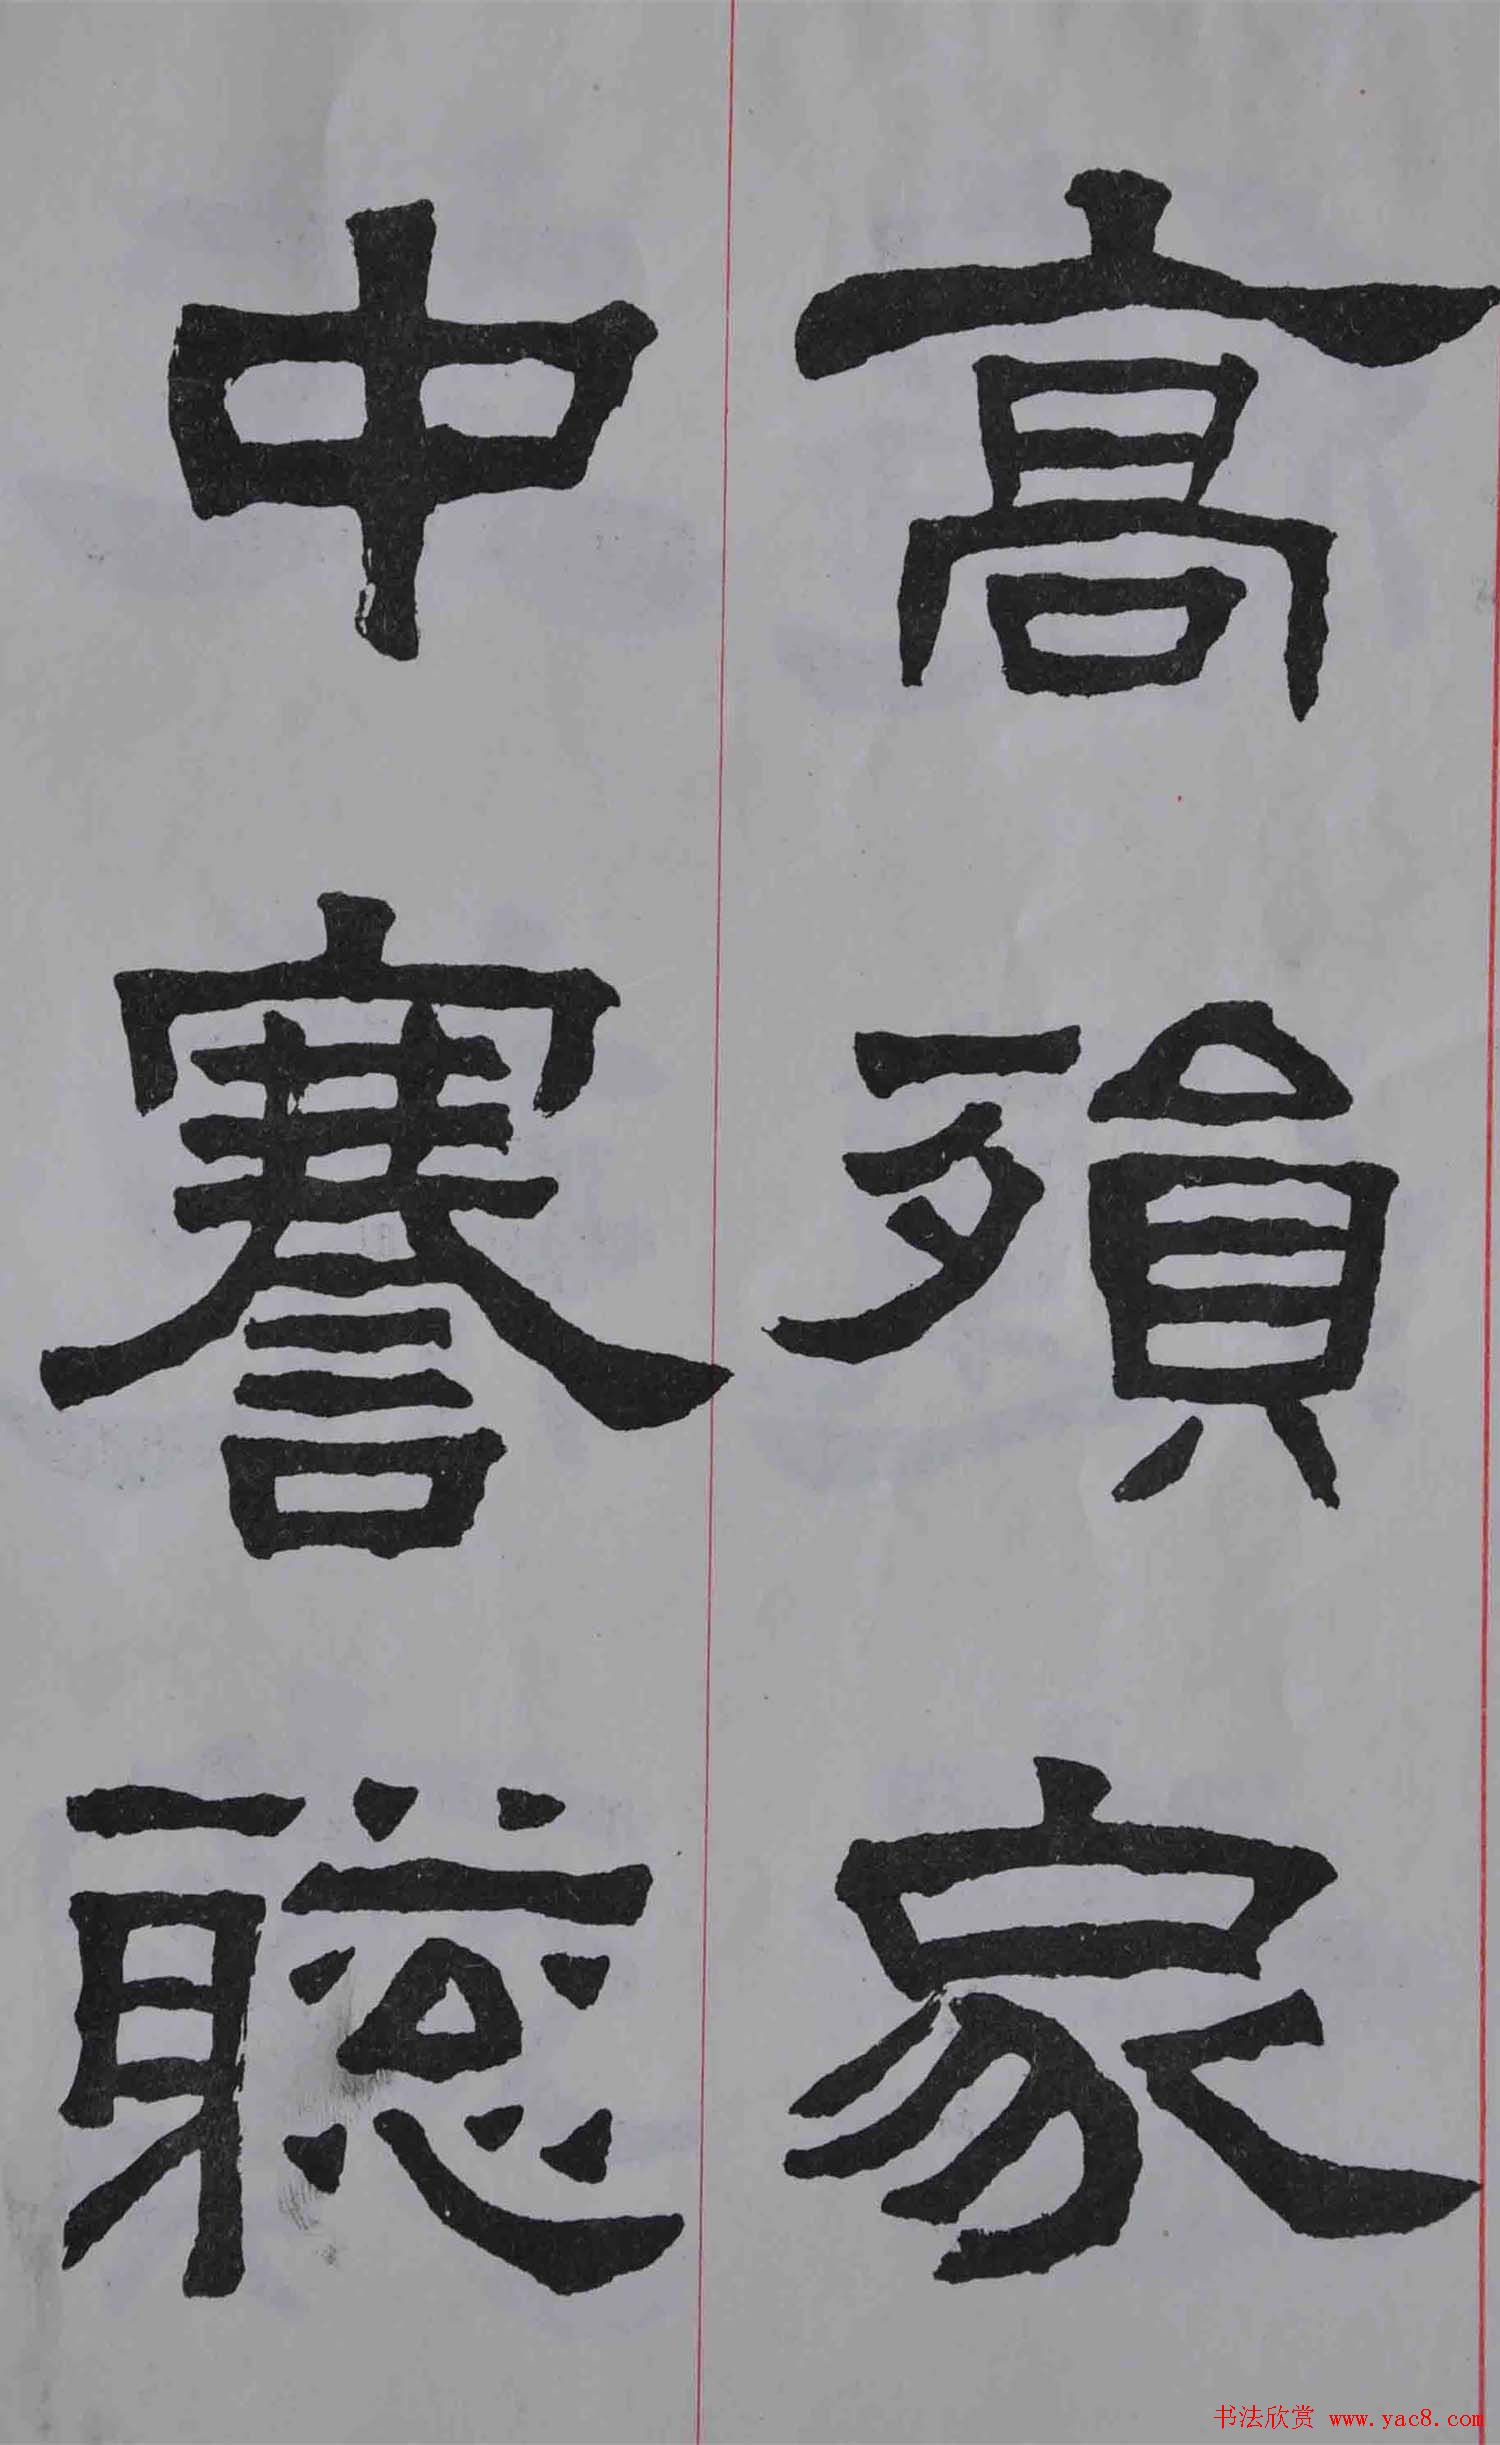 高殞家
中謇聡
书法欣赏 www.yac8.com